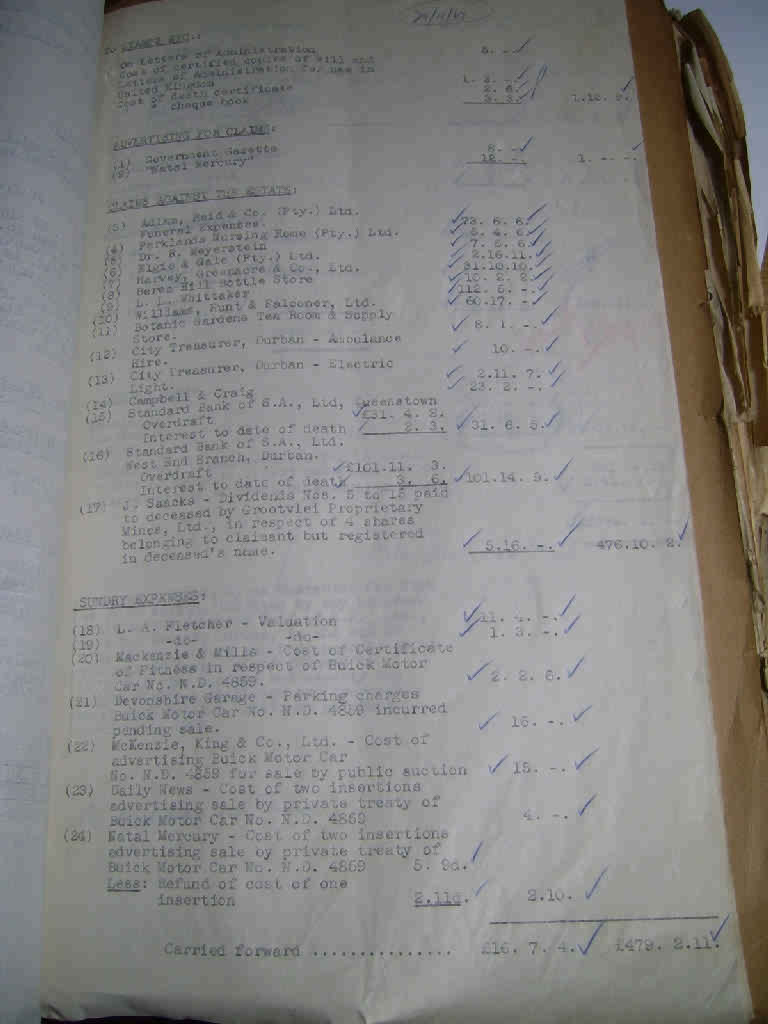 To STAMPS ETC.:
On Letters of Administration 5. -.
Cost of certified copies of Will and
Letters of Administration for use in
United Kingdom 1. 2. -.
Cost of death certificate 2. 6.
" " cheque book 3. 3. 1.12. 9.
ADVERTISING FOR CLAIMS:
(1) Government Gazette 8. -.
(2) "Natal Mercury" 12. -. 1. -. -.
CLAIMS AGAINST THE ESTATE:
(3) Adlam, Reid & Co. (Pty.) Ltd.
Funeral Expenses. 73. 6. 6.
(4) Parklands Nursing Home (Pty.) Ltd. 5. 4. 6.
(5) Dr. B. Meyerstein 7. 5. 6.
(6) Elgie & Gale (Pty.) Ltd. 2.16.11.
(7) Harvey, Greenacre & Co., Ltd. 31.10.10.
(8) Berea Hill Bottle Store 10. 2. 2.
(9) L. L. Whittaker 112. 5. -.
(10) Williams, Hunt & Falconer, Ltd. 60.17. -.
(11) Botanic Gardens Tea Room & Supply
Store. 8. 1. -.
(12) City Treasurer, Durban - Ambulance
Hire. 10. -.
(13) City Treasurer, Durban - Electric
Light. 2.11. 7.
(14) Campbell & Craig 23. 2. -.
(15) Standard Bank of S.A., Ltd, Queenstown
Overdraft £31. 4. 2.
Interest to date of death 2. 3. 31. 6. 5.
(16) Standard Bank of S.A., Ltd.
West End Branch, Durban.
Overdraft £101.11. 3.
Interest to date of death 3. 6. 101.14. 9.
(17) J. Saacks - Dividends Nos. 5 to 15 paid
to deceased by Grootvlei Proprietary
Mines, Ltd., in respect of 4 shares
belonging to claimant but registered
in deceased's name. 5.16. -. 476.10. 2.
SUNDRY EXPENSES:
(18) L. A. Fletcher - Valuation 11. 4. -.
(19) -do- -do- 1. 3. -.
(20) Mackenzie & Mills - Cost of Certificate
of Fitness in respect of Buick Motor
Car No. N.D. 4859. 2. 2. 6.
(21) Devonshire Garage - Parking charges
Buick Motor Car No. N.D. 4859 incurred
pending sale. 16. -.
(22) McKenzie, King & Co., Ltd. - Cost of
advertising Buick Motor Car
No. N.D. 4859 for sale by public auction 15. -.
(23) Daily News - Cost of two insertions
advertising sale by private treaty of
Buick Motor Car No. N.D. 4859 4. -.
(24) Natal Mercury - Cost of two insertions
advertising sale by private treaty of
Buick Motor Car No. N.D. 4859 5. 9d.
Less: Refund of cost of one
insertion 2.11d. 2.10.
Carried forward ............... £16. 7. 4. £479. 2.11.